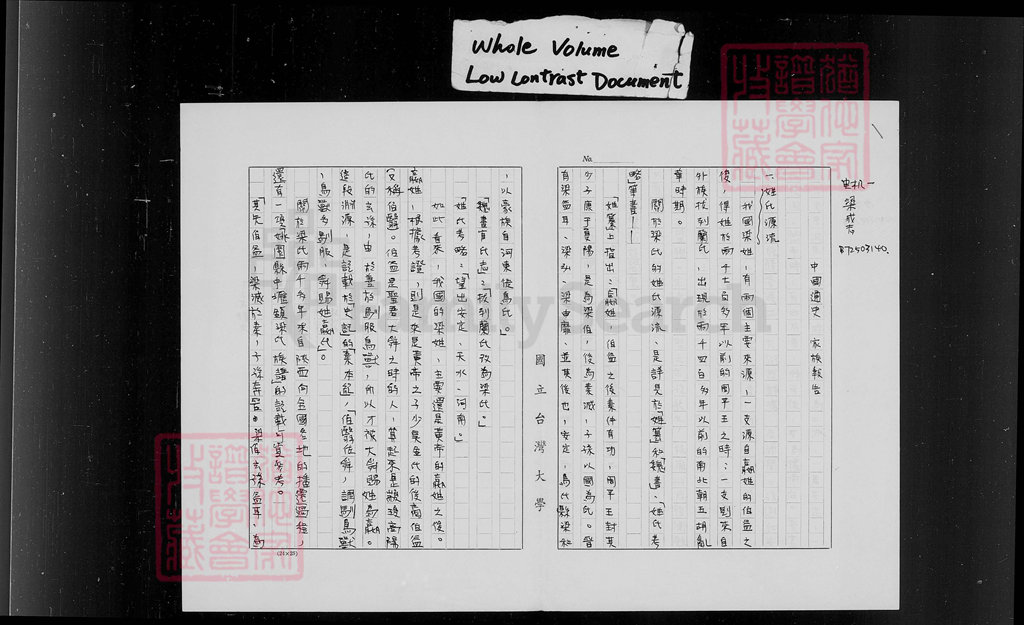 Whole Volume
Low Contrast Document
No.
電机一
梁成志
B72503140
中國通史 家族報告
一、姓氏源流
我國梁姓,有兩個主要來源,一支源自嬴姓的伯益之
後,得姓於兩千七百多年以前的周平王之時;一支則來自
外族拔列蘭氏,出現於兩千四百多年以前的南北朝五胡亂
華時期。
關於梁氏的姓氏源流,是詳見於「姓纂」和「魏書」、「姓氏考
略」等書——
「姓纂」上指出:「嬴姓,伯益之後秦仲有功,周平王封其
少子康于夏陽,是為梁伯,後為秦滅,子孫以國為氏。晉
有梁益耳、梁弘、梁由靡,並其後也,安定,烏氏縣梁和
,以豪族自河東徙烏氏。」
「魏書官氏志」:「拔列蘭氏改為梁氏。」
「姓氏考略」:「望出安定、天水、河南。」
如此看來,我國的梁姓,主要還是黃帝的嬴姓之後。
嬴姓,根據考證,則是來是黃帝之子少昊金氏的後裔伯益
(又稱伯翳)。伯益是聖君大舜之時的人,算起來是顓頊高陽
氏的玄孫,由於善於馴服鳥獸,所以才被大舜賜姓為嬴。
這段淵源,是記載於「史記」的「秦本紀」,「伯翳佐舜,調馴鳥獸
,鳥獸多馴服,舜賜姓嬴氏」。
關於梁氏兩千多年來自陝西向全國各地的播遷過程,
還有一項「桃園縣中壢鎮梁氏族譜」的記載可資參考。
「其先伯益,梁滅於秦,子孫奔晉。梁伯玄孫益耳,為
(24×25)
國立台灣大學
FamilySearch